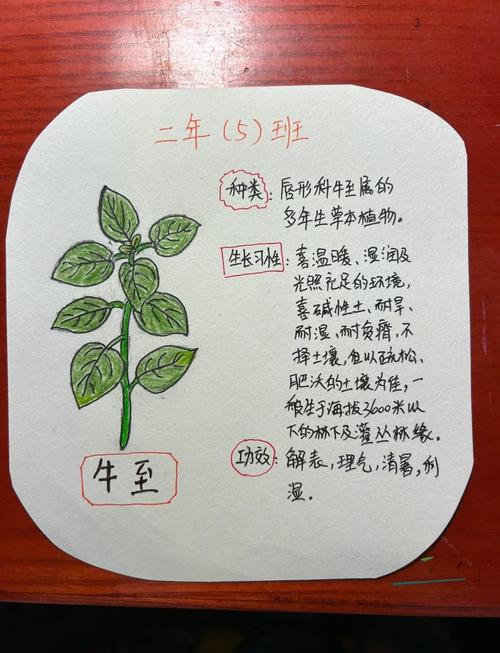 二年(5)班
种类:唇形科牛至属的
多年生草本植物。
生长习性:喜温暖、湿润及
光照充足的环境,
喜碱性土、耐旱、
耐湿、耐贫瘠,不
择土壤,但以疏松、
肥沃的土壤为佳,一
般生于海拔3600米以
下的林下及灌丛林缘。
功效:解表,理气,清暑,利
湿。
牛至